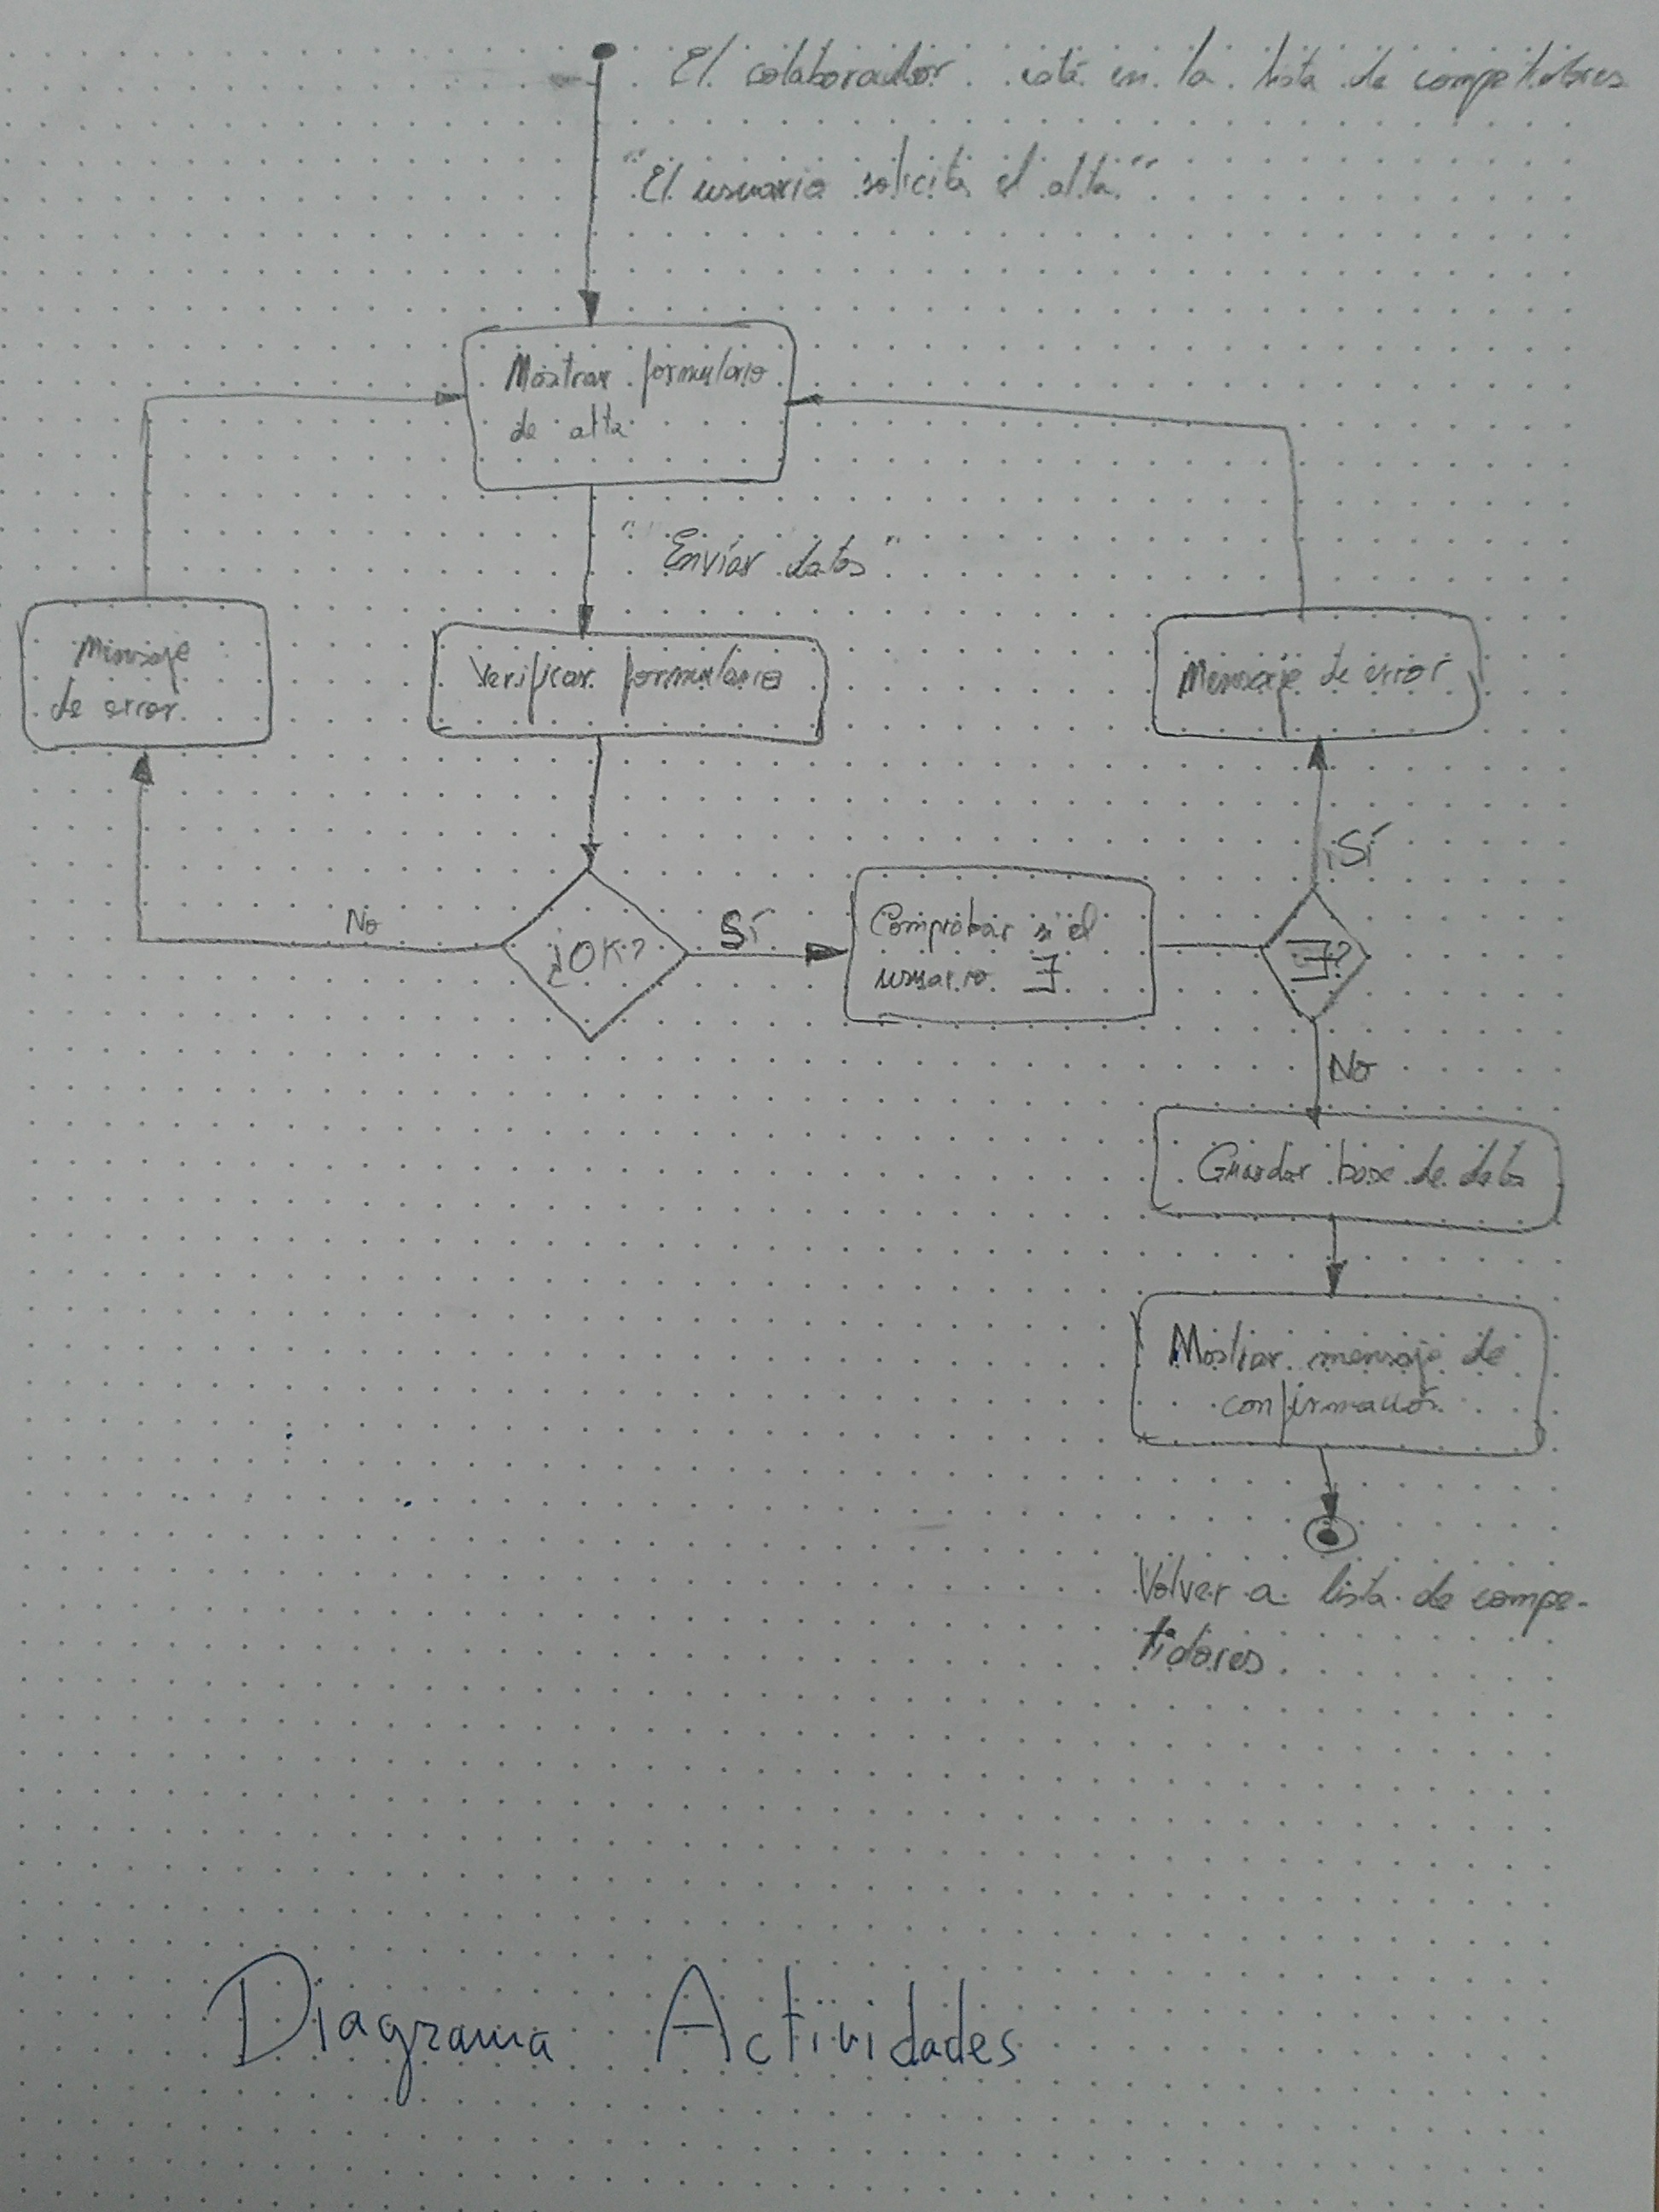 El colaborador está en la lista de competidores
"El usuario solicita el alta"
Mostrar formulario
de alta
"Envíar datos"
Mensaje
de error
Verificar formulario
Mensaje de error
Sí
No
¿OK?
Sí
Comprobar si el
usuario ∃
∃?
No
Guardar base de datos
Mostrar mensaje de
confirmación
Volver a lista de compe-
tidores
Diagrama Actividades